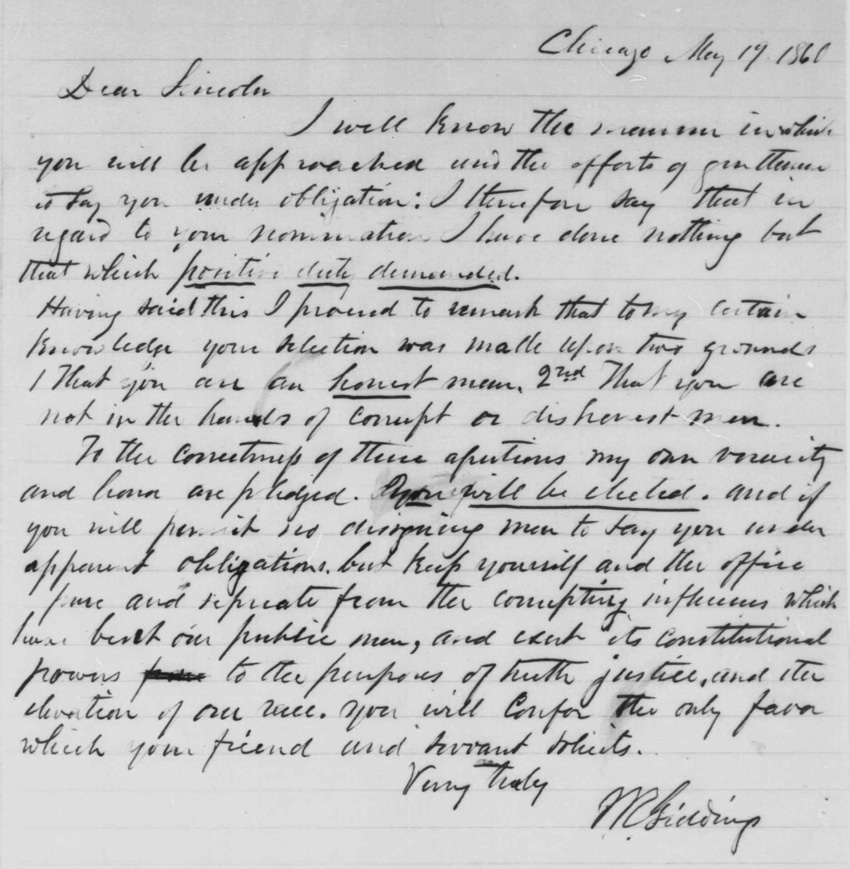 Chicago May 19 1860
Dear Lincoln
I well know the manner in which
you will be approached and the efforts of gentlemen
to lay you under obligation: I therefore say that in
regard to your nomination I have done nothing but
that which positive duty demanded.
Having said this I proceed to remark that to my certain
knowledge your selection was made upon two grounds
1 That you are an honest man. 2nd That you are
not in the hands of corrupt or dishonest men.
To the correctness of these assertions my own veracity
and honor are pledged. You will be elected. and if
you will permit no designing men to lay you under
apparent obligations. but keep yourself and the office
pure and seperate from the corrupting influences which
have beset our public men, and exert its constitutional
powers to the purposes of truth justice, and the
elevation of our race. you will confer the only favor
which your friend and servant solicits.
Very truly
Giddings